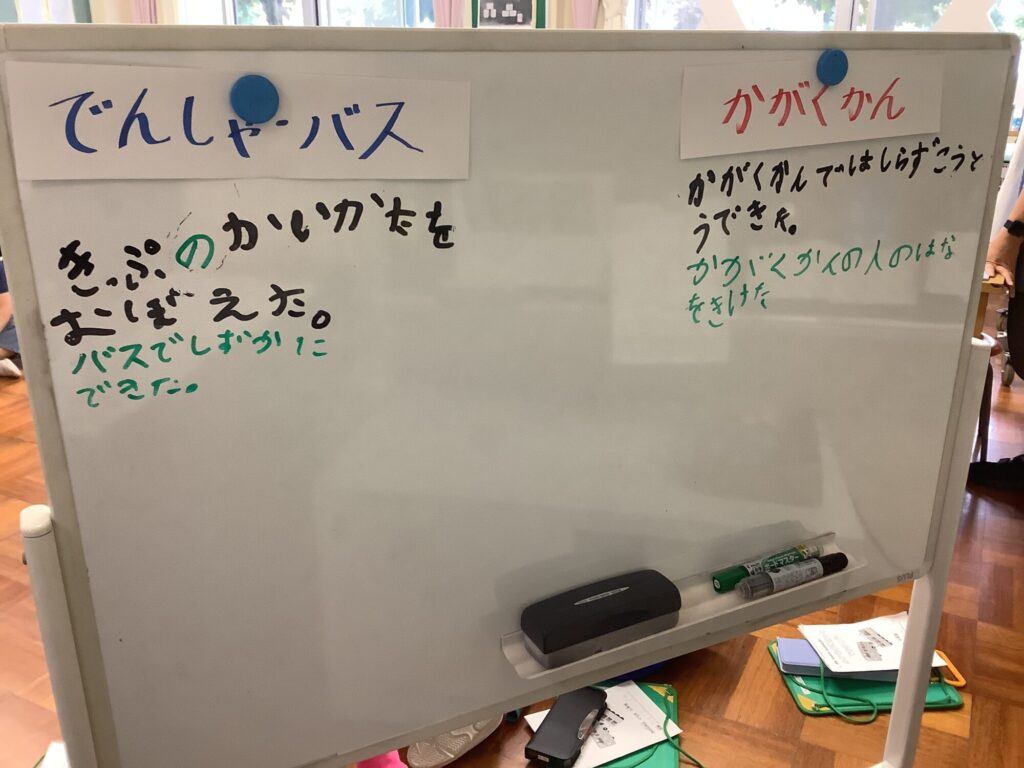 でんしゃ・バス
きっぷのかいかたを
おぼえた。
バスでしずかに
できた。
かがくかん
かがくかんではしらずこうと
うできた。
かがくかんの人のはな
をきけた